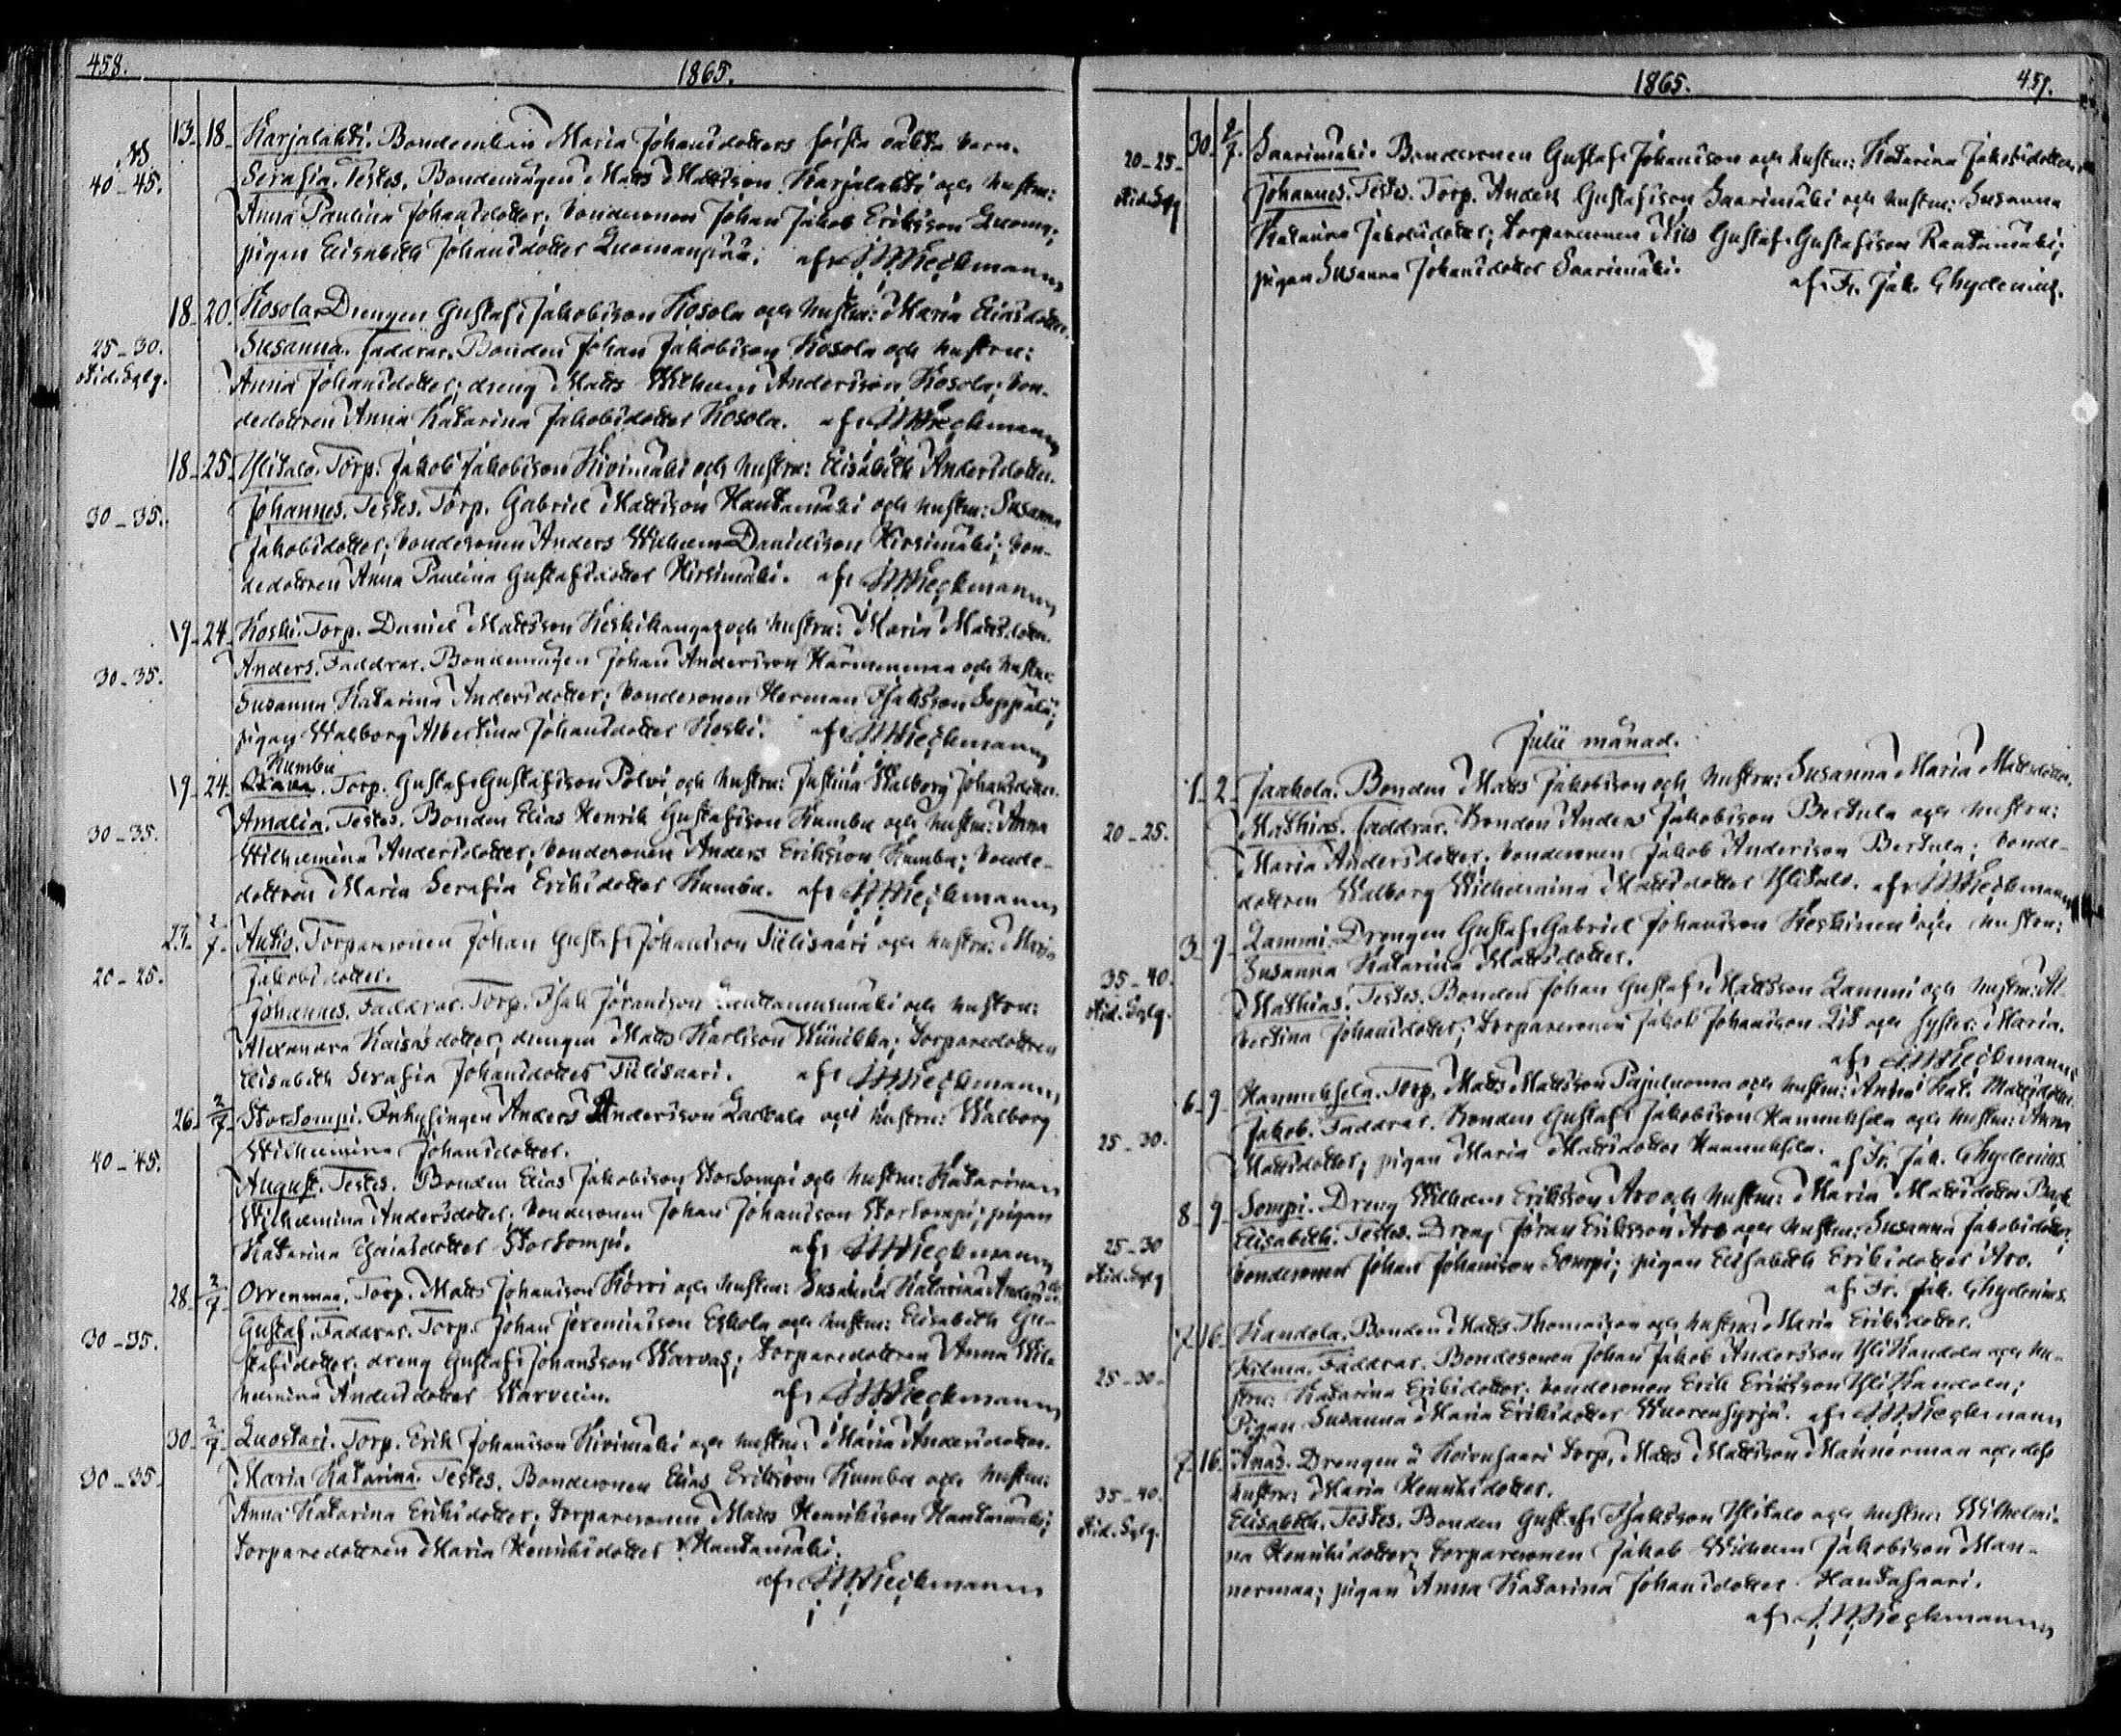 458.
1865.
13. 18. Karjalahti. Bondeenkan Maria Johansdotters första oäkta barn.
40-45. Serafia. Testes. Bondemågen Matts Mattsson Karjalahti och hustru:
Anna Paulina Johansdotter; bondesonen Johan Jakob Eriksson Luoma;
pigan Elisabeth Johansdotter Luomanpää. af Wieckmann
18. 20. Kosola. Drengen Gustaf Jakobsson Kosola och hustru: Maria Eliasdotter.
25-30. Susanna. Faddrar. Bonden Johan Jakobsson Kosola och hustru:
Anna Johansdotter; dreng Matts Wilhelm Andersson Kosola; bon-
dedottren Anna Katarina Jakobsdotter Kosola. af Wieckmann
18. 25. Ylitalo. Torp. Jakob Jakobsson Kivimäki och hustru: Elisabeth Andersdotter.
30-35. Johannes. Testes. Torp. Gabriel Mattsson Hautamäki och hustru: Susanna
Jakobsdotter; bondesonen Anders Wilhelm Danielsson Hirsimäki; bon-
dedottren Anna Paulina Gustafsdotter Hirsimäki. af Wieckmann
19. 24. Koski. Torp. Daniel Mattsson Keskikangas och hustru: Maria Mattsdotter.
30-35. Anders. Faddrar. Bondemågen Johan Andersson Härmenmaa och hustru
Susanna Katarina Andersdotter; bondesonen Herman Isaksson Seppälä;
pigan Walborg Albertina Johansdotter Koski. af Wieckmann
Kumbu
19. 24. Torp. Gustaf Gustafsson Polvi och hustru: Justina Walborg Johansdotter.
30-35. Amalia. Testes. Bonden Elias Henrik Gustafsson Kumbu och hustru: Anna
Wilhelmina Andersdotter; bondesonen Anders Eriksson Kumbu; bonde-
dottren Maria Serafia Eriksdotter Kumbu. af Wieckmann
23. 2/7. Antis. Torparesonen Johan Gustaf Johansson Tiilisaari och hustru: Maria
20-25. Jakobsdotter.
Johannes. Faddrar. Torp. Isak Jöransson Lauttamusmäki och hustru:
Alexandra Kaisasdotter; drengen Matts Karlsson Wiinikka; torparedottren
Elisabeth Serafia Johansdotter Tiilisaari. af Wieckmann
26. 2/7 Storsompi. Inhysingen Anders Andersson Lakkala och hustru: Walborg
40-45. Wilhelmina Johansdotter.
August. Testes. Bonden Elias Jakobsson Storsompi och hustru: Katarina
Wilhelmina Andersdotter; bondesonen Johan Johansson Storsompi; pigan
Katarina Esaiasdotter Storsompi. af Wieckmann
28. 2/7 Orrenmaa. Torp. Matts Johansson Körri och hustru: Susanna Katarina Andersd.
30-35. Gustaf. Faddrar. Torp. Johan Jeremiasson Eskola och hustru: Elisabeth Gu-
stafsdotter; dreng Gustaf Johansson Warvas; torparedottren Anna Wil-
helmina Andersdotter Warvein. af Wieckmann
30. 2/7 Luostari. Torp. Erik Johansson Kivimäki och hustru: Maria Andersdotter.
30-35. Maria Katarina. Testes. Bondesonen Elias Eriksson Kumbu och hustru:
Anna Katarina Eriksdotter; torparesonen Matts Henriksson Hautamäki;
torparedottren Maria Henriksdotter Hautamäki.
af Wieckmann
1865.
459.
30. 2/7. Saarimäki. Bondesonen Gustaf Johansson och hustru: Katarina Jakobsdotter.
20-25. Johannes. Testes. Torp. Anders Gustafsson Saarimäki och hustru: Susanna
Katarina Jakobsdotter; torparesonen Nils Gustaf Gustafsson Rantamäki;
pigan Susanna Johansdotter Saarimäki.
af Fr. Jak. Chydenius.
Julii månad.
1. 2. Jaakola. Bonden Matts Jakobsson och hustru: Susanna Maria Mattsdotter.
20-25. Mathias. Faddrar. Bonden Anders Jakobsson Bertula och hustru:
Maria Andersdotter; bondesonen Jakob Andersson Bertula; bonde-
dottren Walborg Wilhelmina Mattsdotter Ylitalo. af Wieckmann
3. 9. Lammi. Drengen Gustaf Gabriel Johansson Keskinen och hustru:
35-40. Susanna Katarina Mattsdotter.
Mathias. Testes. Bonden Johan Gustaf Mattsson Lammi och hustru: Al-
bertina Johansdotter; torparesonen Jakob Johansson Lis och syster: Maria.
af Wieckmann
6. 9. Hannuksela. Torp. Matts Mattsson Pajuluoma och hustru: Anna Kat. Mattsdotter.
25-30. Jakob. Faddrar. Bonden Gustaf Jakobsson Hannuksela och hustru: Anna
Mattsdotter; pigan Maria Mattsdotter Hannuksela. af Fr. Jak. Chydenius
8. 9. Sompi. Dreng Wilhelm Eriksson Aro och hustru: Maria Mattsdotter Back
25-30 Elisabeth. Testes. Dreng Jöran Eriksson Aro och hustru: Susanna Jakobsdotter;
bondesonen Johan Johansson Sompi; pigan Elisabeth Eriksdotter Aro.
af Fr. Jak. Chydenius.
7. 16. Kandola. Bonden Matts Thomasson och hustru: Maria Eriksdotter.
25-30. Hilma. Faddrar. Bondesonen Johan Jakob Andersson Yli Kandola och hu-
stru: Katarina Eriksdotter; bondesonen Erik Eriksson Yli Kandola;
Pigan Susanna Maria Eriksdotter Wuorensyrjä. af Wieckmann
7. 16. Anas. Drengen å Koivusaari torp, Matts Mattsson Mannermaa och dess
35-40. hustru: Maria Henriksdotter.
Elisabeth. Testes. Bonden Gustaf Isaksson Ylitalo och hustru: Wilhelmi-
na Henriksdotter; torparesonen Jakob Wilhelm Jakobsson Man-
nermaa; pigan Anna Katarina Johansdotter Hautasaari.
af Wieckmann